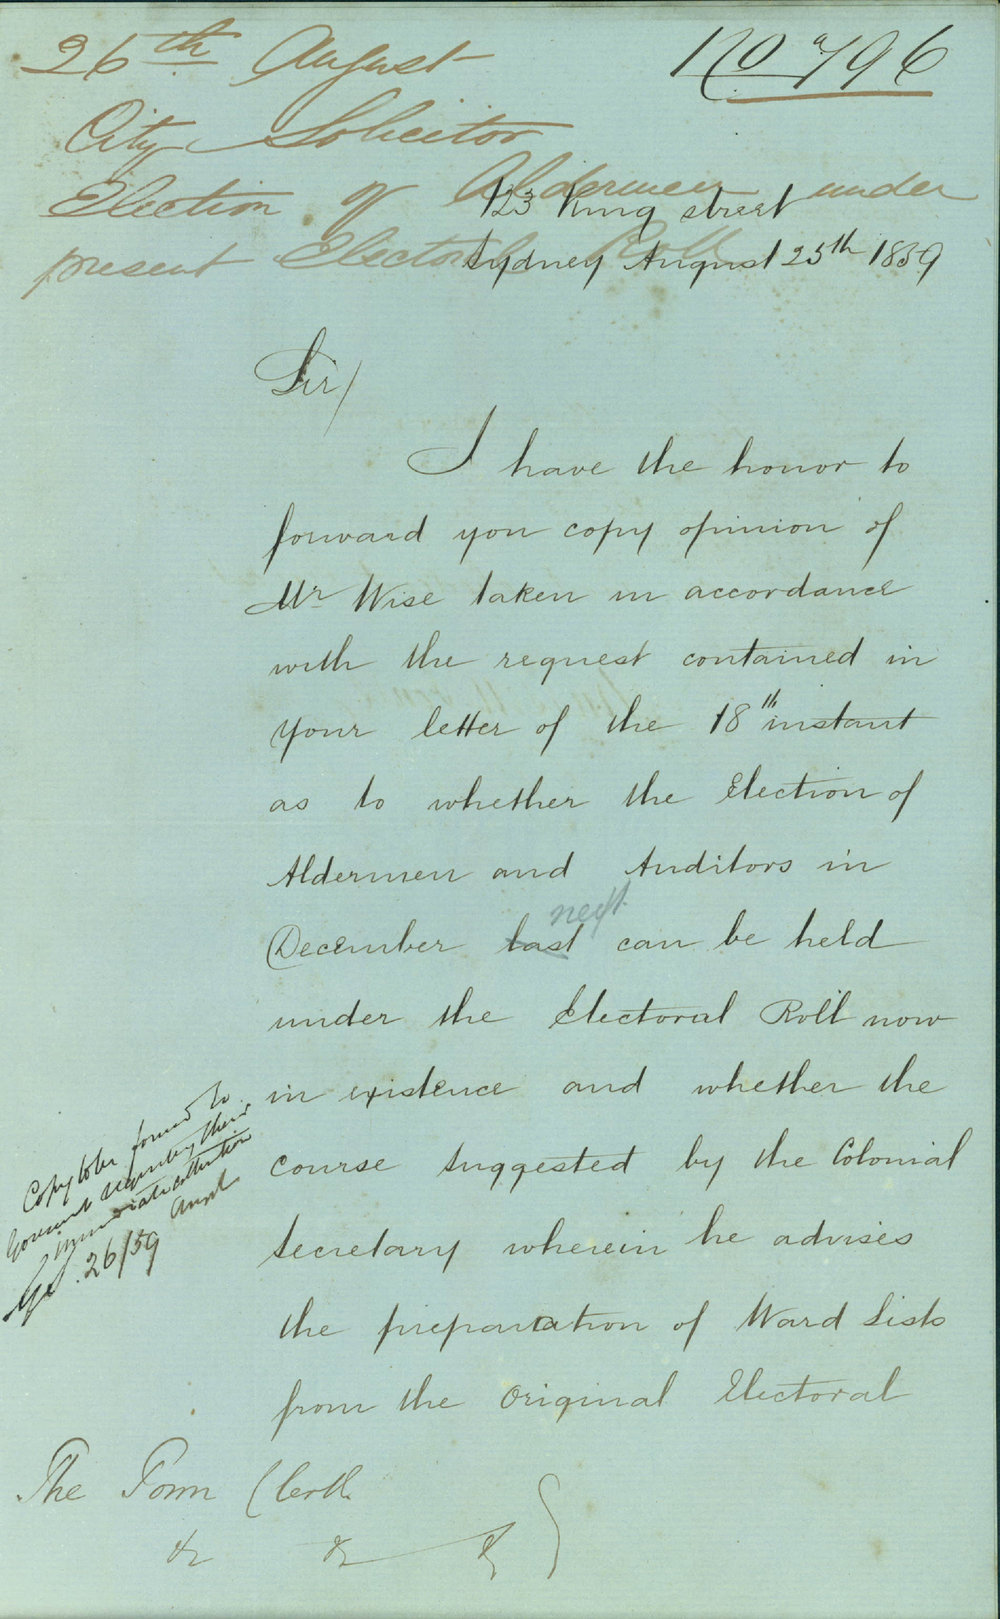 26th August
No 796
City Solicitor
Election of Aldermen under
present Electoral Roll
123 King street
Sydney August 25th 1859
Sir/
I have the honor to
forward you copy opinion of
Mr Wise taken in accordance
with the request contained in
your letter of the 18th instant
as to whether the Election of
Aldermen and Auditors in
next
December last can be held
under the Electoral Roll now
in existence and whether the
course suggested by the Colonial
Secretary wherein he advises
the preparation of Ward Lists
from the Original Electoral
Copy to be forwd to
Goverment requestg their
immediate attention
26/59
The Town Clerk
&c &c &c